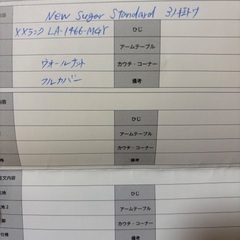 NEW Sugar Standard 3人掛け
XXランク LA-1466-MGY ひじ
アームテーブル
ウォールナット カウチ・コーナー
フルカバー 備考
内容
ひじ
アームテーブル
カウチ・コーナー
備考
文内容
ひじ
アームテーブル
カウチ・コーナー
備考